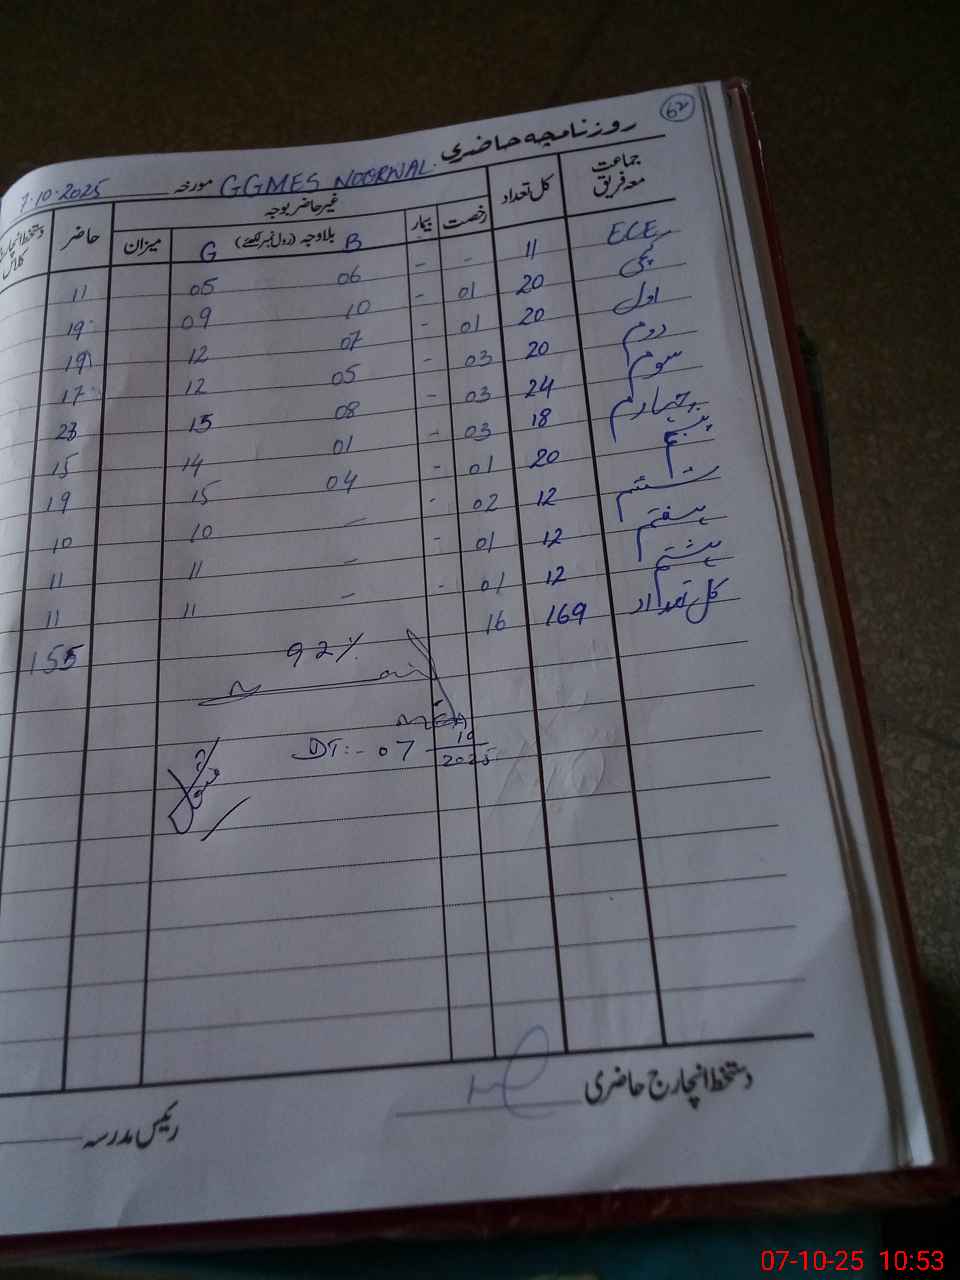 62
روزنامچہ حاضری GGMES NOORWAL. مورخہ 7.10.2025
جماعت معہ فریق کل تعداد رخصت بیمار غیر حاضر بوجہ میزان حاضر دستخط انچارج کلاس
بلاوجہ (رول نمبر لکھئے) B G
ECE 11 - - 06 05 11
کچی 20 01 - 10 09 19
اول 20 01 - 07 12 19
دوم 20 03 - 05 12 17
سوم 24 03 - 08 15 23
چہارم 18 03 - 01 14 15
پنجم 20 01 - 04 15 19
ششم 12 02 - 10 10
ہفتم 12 01 - - 11 11
ہشتم 12 01 - - 11 11
کل تعداد 169 16 155
92%
MEA
DT:- 07 10 2025
دستخط انچارج حاضری
رئیس مدرسہ
07-10-25 10:53